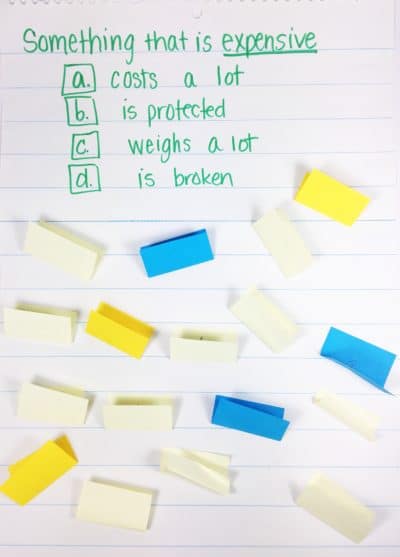 Something that is expensive
a. costs a lot
b. is protected
c. weighs a lot
d. is broken